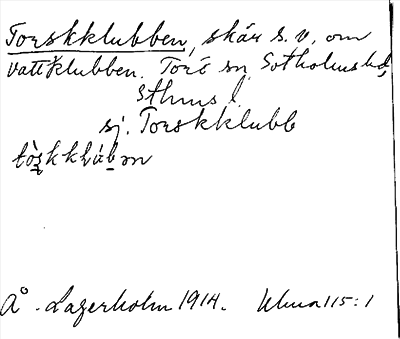 Torskklubben, skär s.v. om
Vattklubben. Torö sn, Sotholms hd,
Sthms l.
sj. Torskklubb
tòs̠kkḷúb̠ən
Å. Lagerholm 1914.